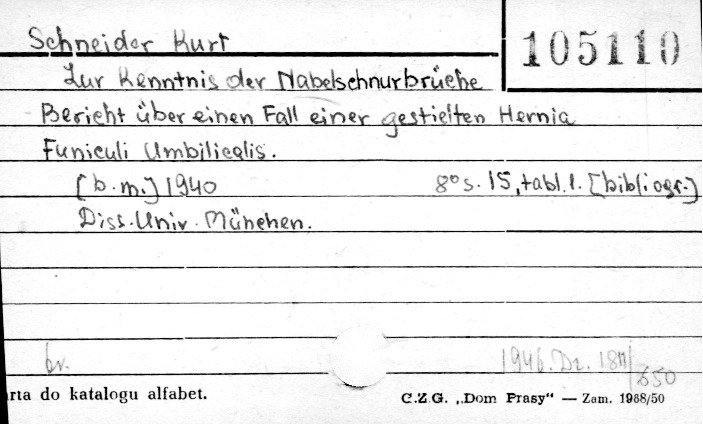 Schneider Kurt
105110
Zur Kenntnis der Nabelschnurbrüche
Bericht über einen Fall einer gestielten Hernia
Funiculi Umbilicalis.
[b.m.] 1940 8° s. 15, tabl. 1. [bibliogr.]
Diss. Univ. München.
br.
1946. Dz.
rta do katalogu alfabet.
C.Z.G. „Dom Prasy“ — Zam. 1968/50